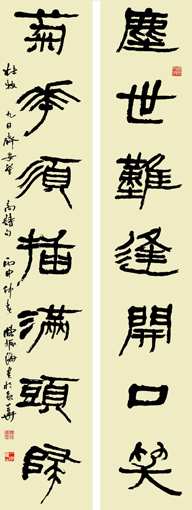 塵世難逢開口笑
菊花須插滿頭歸
杜牧 九日齊安登高詩句 丙申仲春